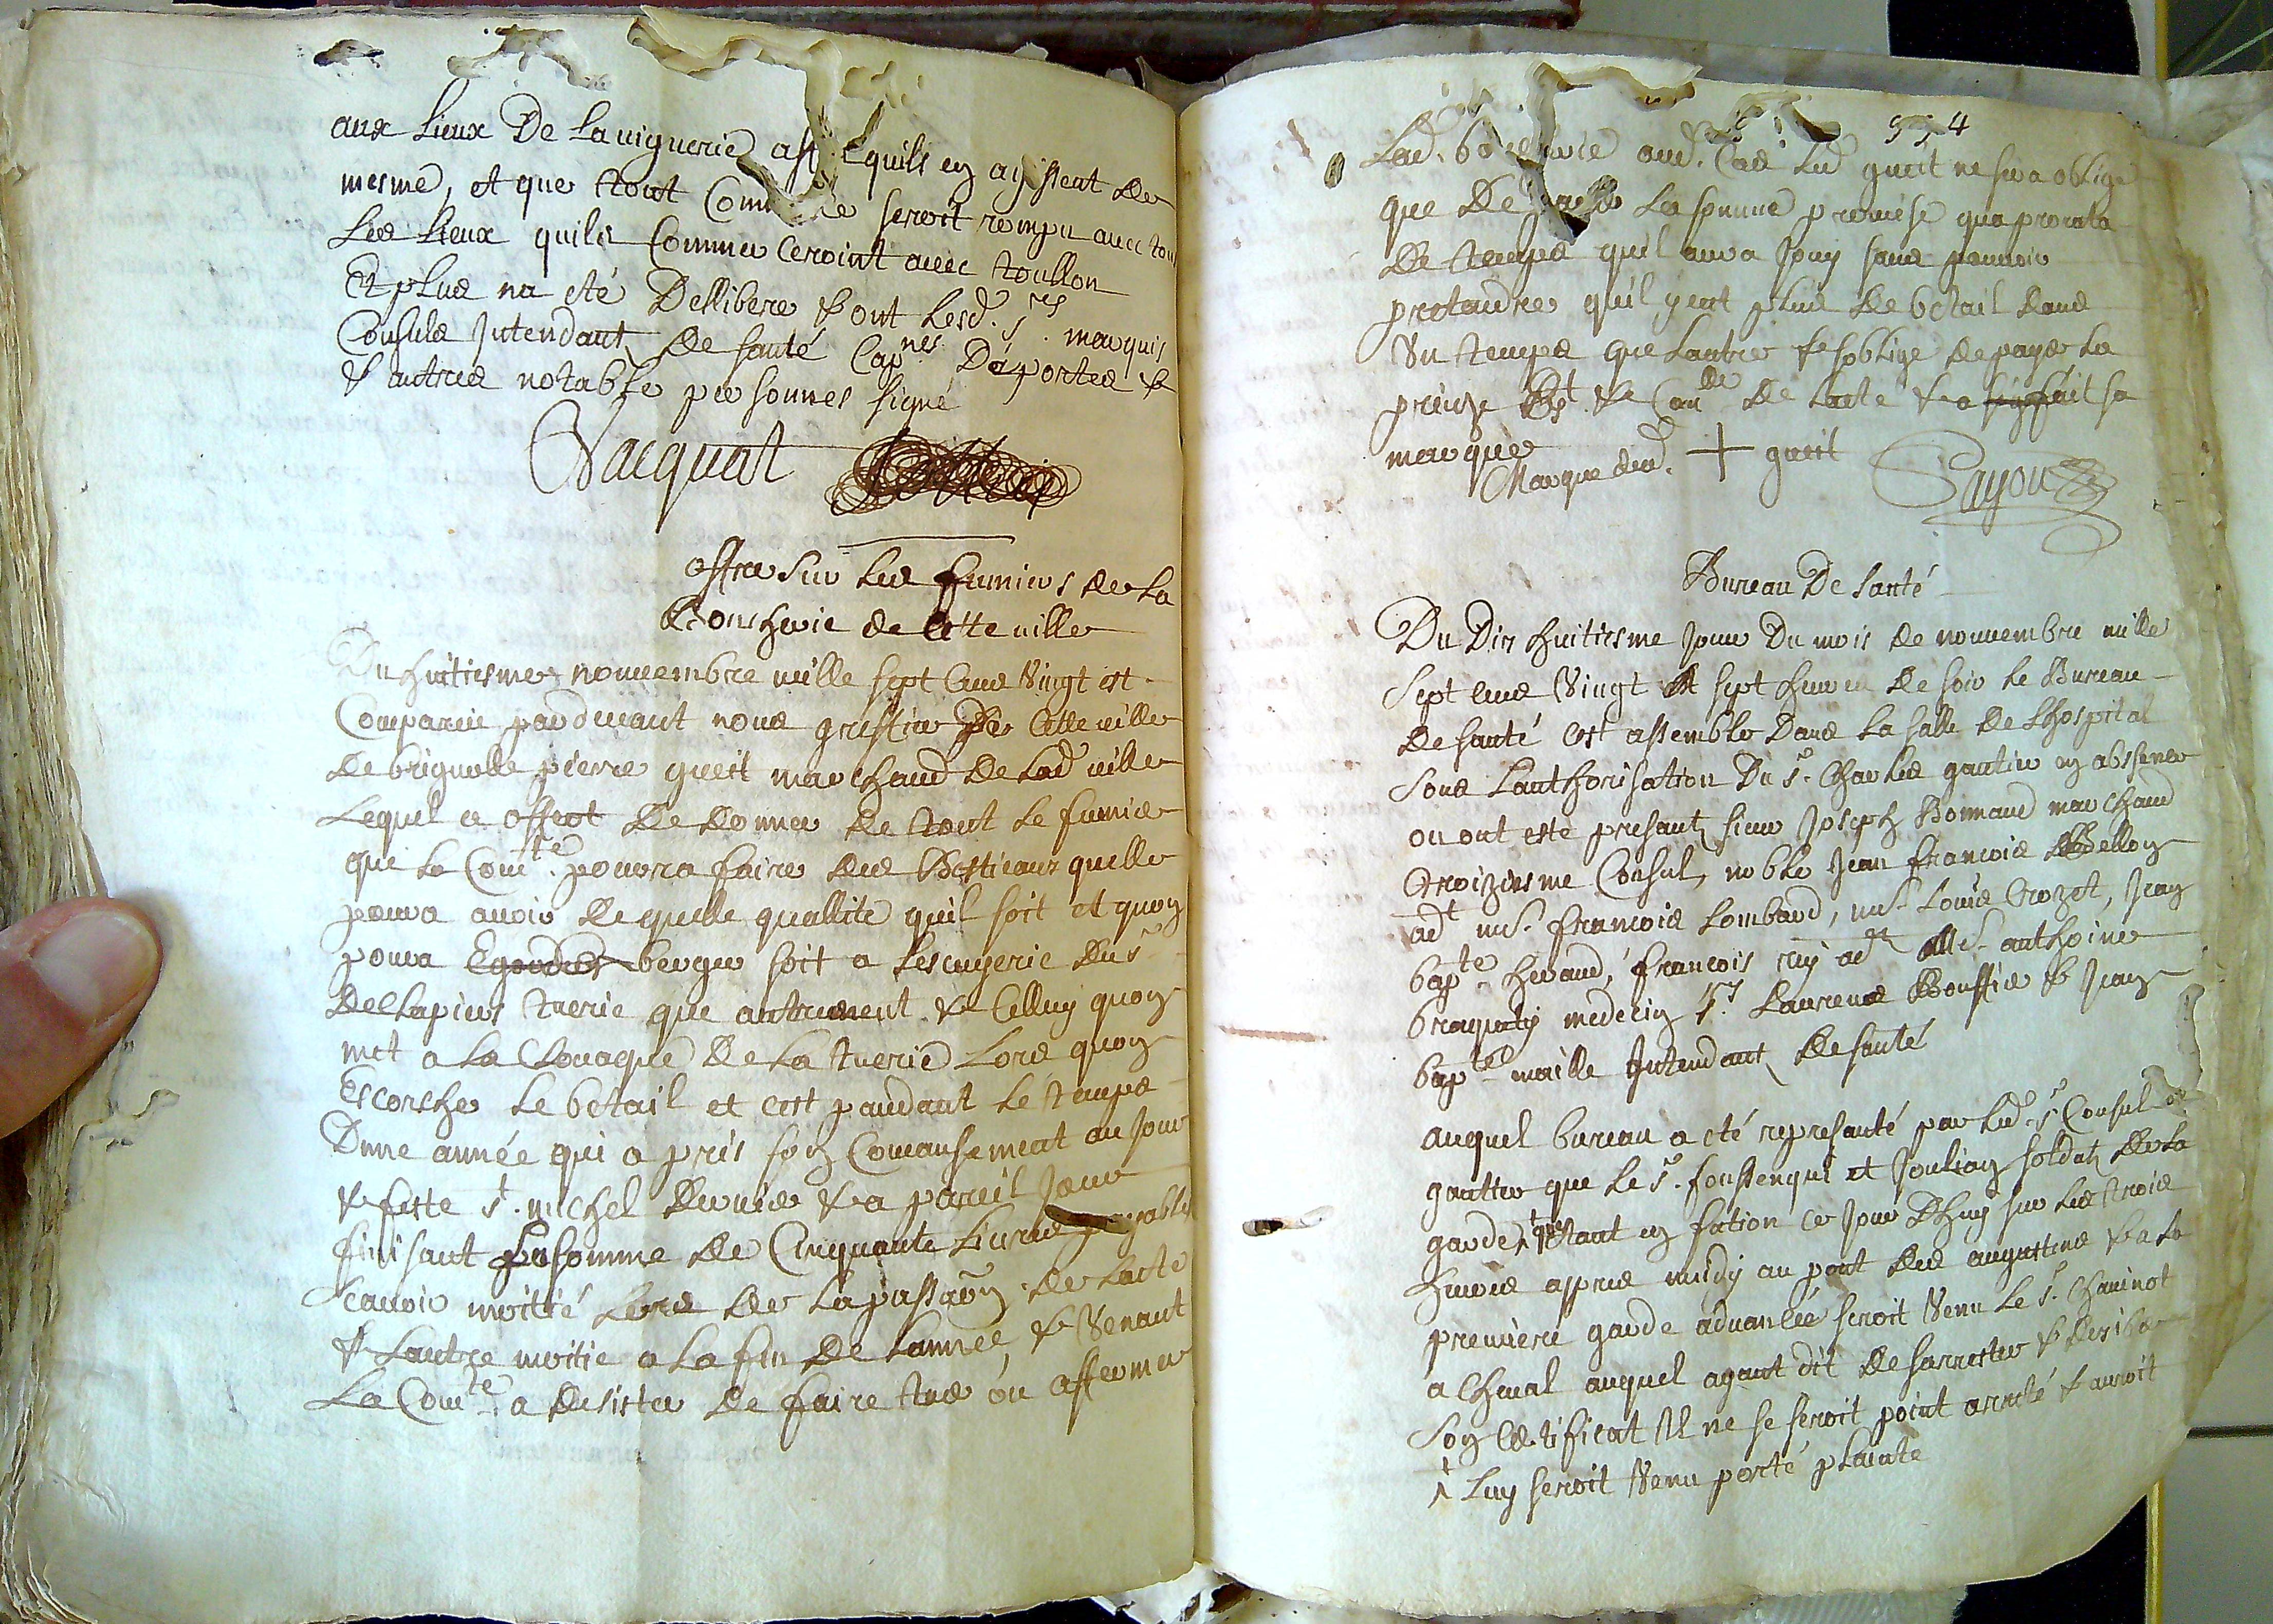 aux Lieux De La viguerie aff. Equils en agissent de
mesme, et que tout Comm seroit rompu avec tous
Les Lieux quils Commerceroint avec toullon
Et plus na été Dellibere & ont Lesd. srs. marquis
Consuls Intendant De santé Capnes. Dé portes &
& autres notable personnes signé
Vacquat
offre sur Les fumiers de La
Boucherie de Cette ville
Du huitiesme nouvembre mille sept Cens Vingt est
Comparu pardevant nous greffier De Cette ville
De brignolle pierre gueit marchand De Lad ville
Lequel a offert De donner De tout Le fumier
que La Comte. pourra faire des Bestieaux quelle
poura avoir De quelle quallité quil soit et quon
poura Egorder berger soit a Lescuyerie du sr
Delapiers tuerie que autrement & Celluy quon
met a La Clouaque De La tuerie Lors quon
Escorche Le bétail et cest pandant Le temps
Dune année qui a pris son Comansement au Jour
& feste st. michel dernier & a pareil Jour
finisant La somme de Cinquante Livres payables
scavoir moitié Lors de La passaon de Lacte
& Lautre moitie a La fin De Lannée, & Venant
La Comte. a desister de faire tuer ou affermer
554
Lad. boucherie aud. Cas Led gueit ne sera obligé
que De La somme promise qua prorata
De temps quil aura Jouy sans pouvoir
pretandre quil y eut plus de bétail dans
Un temps que Lautre & soblige de payer La
preinze Et & Conde De Lacte & a fait sa
marque
Marque dud. + gueit Sayou
Bureau De Santé
Du Dix huitiesme Jour Du mois de nouvembre mille
Sept cens Vingt A sept heures de soir Le Bureau
De santé cest assemblé Dans La salle de Lhospital
Sous Lauthorisation Du sr. Charles gautier en abssence
ou ont esté presants sieur Joseph Bonnaud marchand
troiziesme Consul, noble Jean francois Debellon
adt me. francois Lombard, me. Louis Crozet, Jean
bapte. heraud, francois rey adt Me. anthoine
braquety medecin sr. Laurens Bouffier & Jean
bapte. maille Intendant De santé
auquel bureau a été representé par Led. sr. Consul
gautier que Le sr. foussenqui et Jouliany soldats de La
garde etant en faction ce Jour Dhuy sur Les trois
heures appres midy au pont des augustins & a La
premiere garde advancée seroit Venu Le sr. Chauinot
a cheval auquel ayant dit de sarrester &
son Certificat Il ne se seroit point arresté & auroit
Luy seroit Venu porté plainte